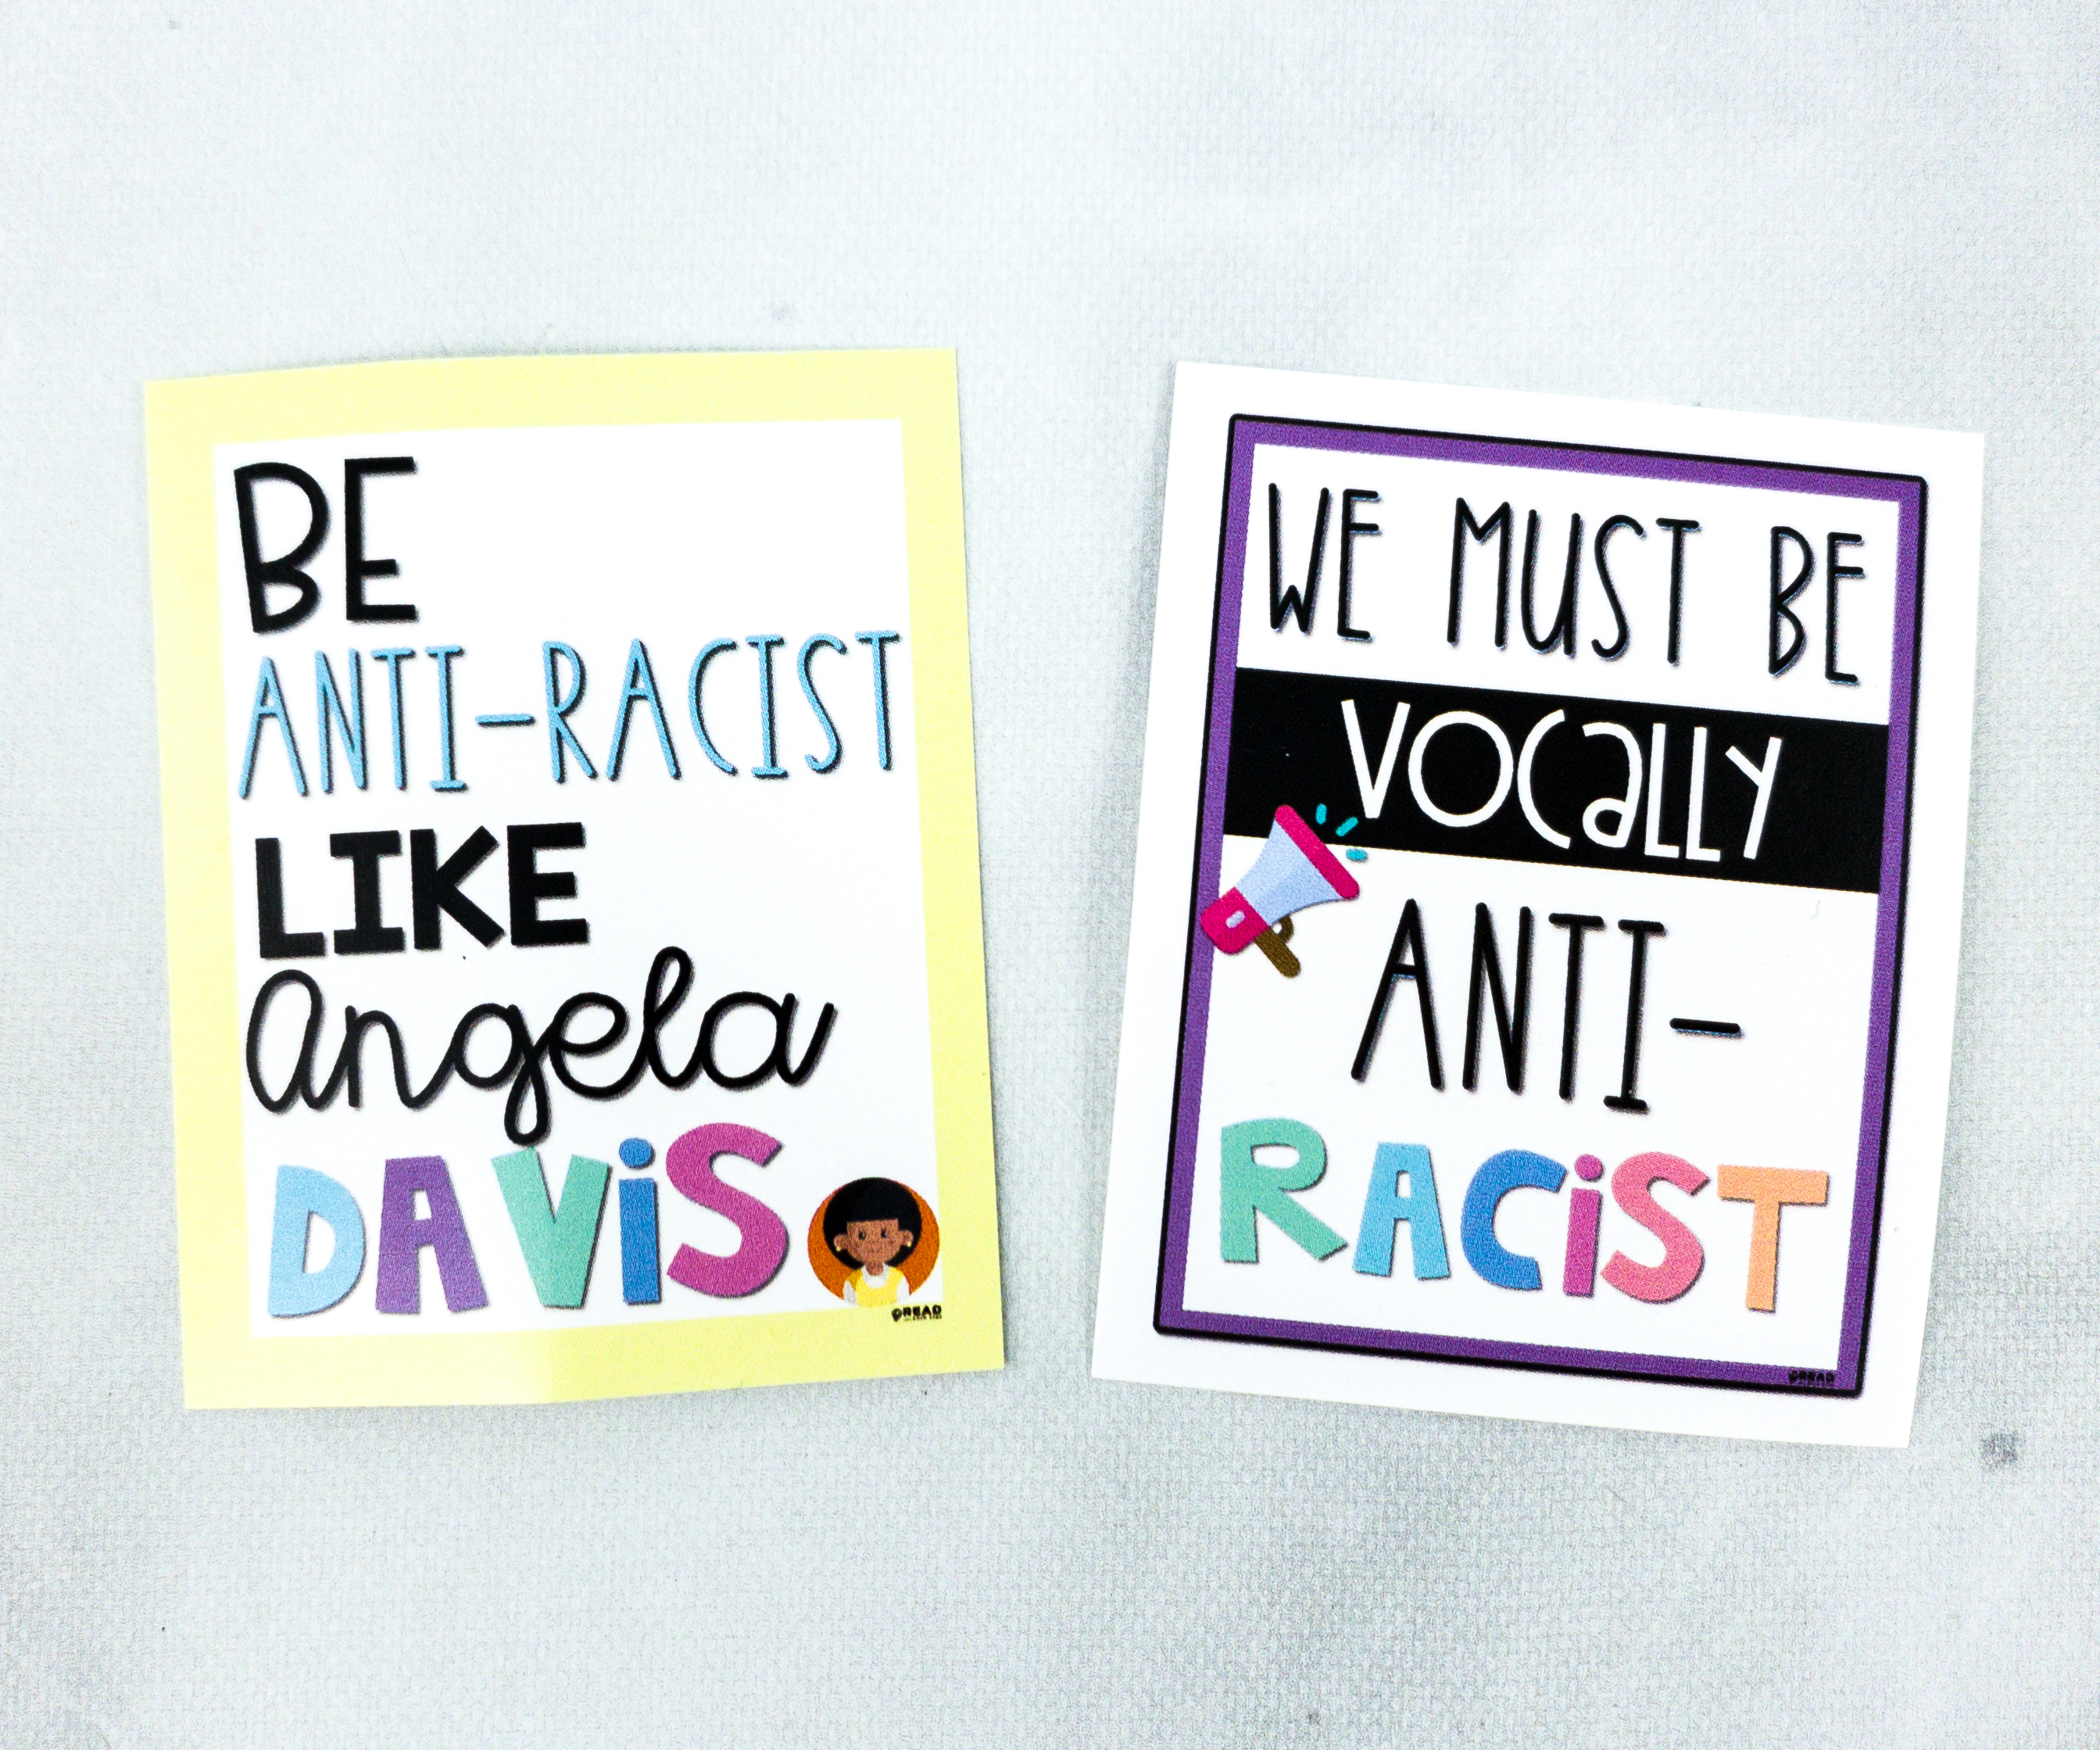 BE
ANTI-RACIST
LIKE
Angela
DAViS
READ
WE MUST BE
VOCaLLY
ANTI-
RACiST
READ